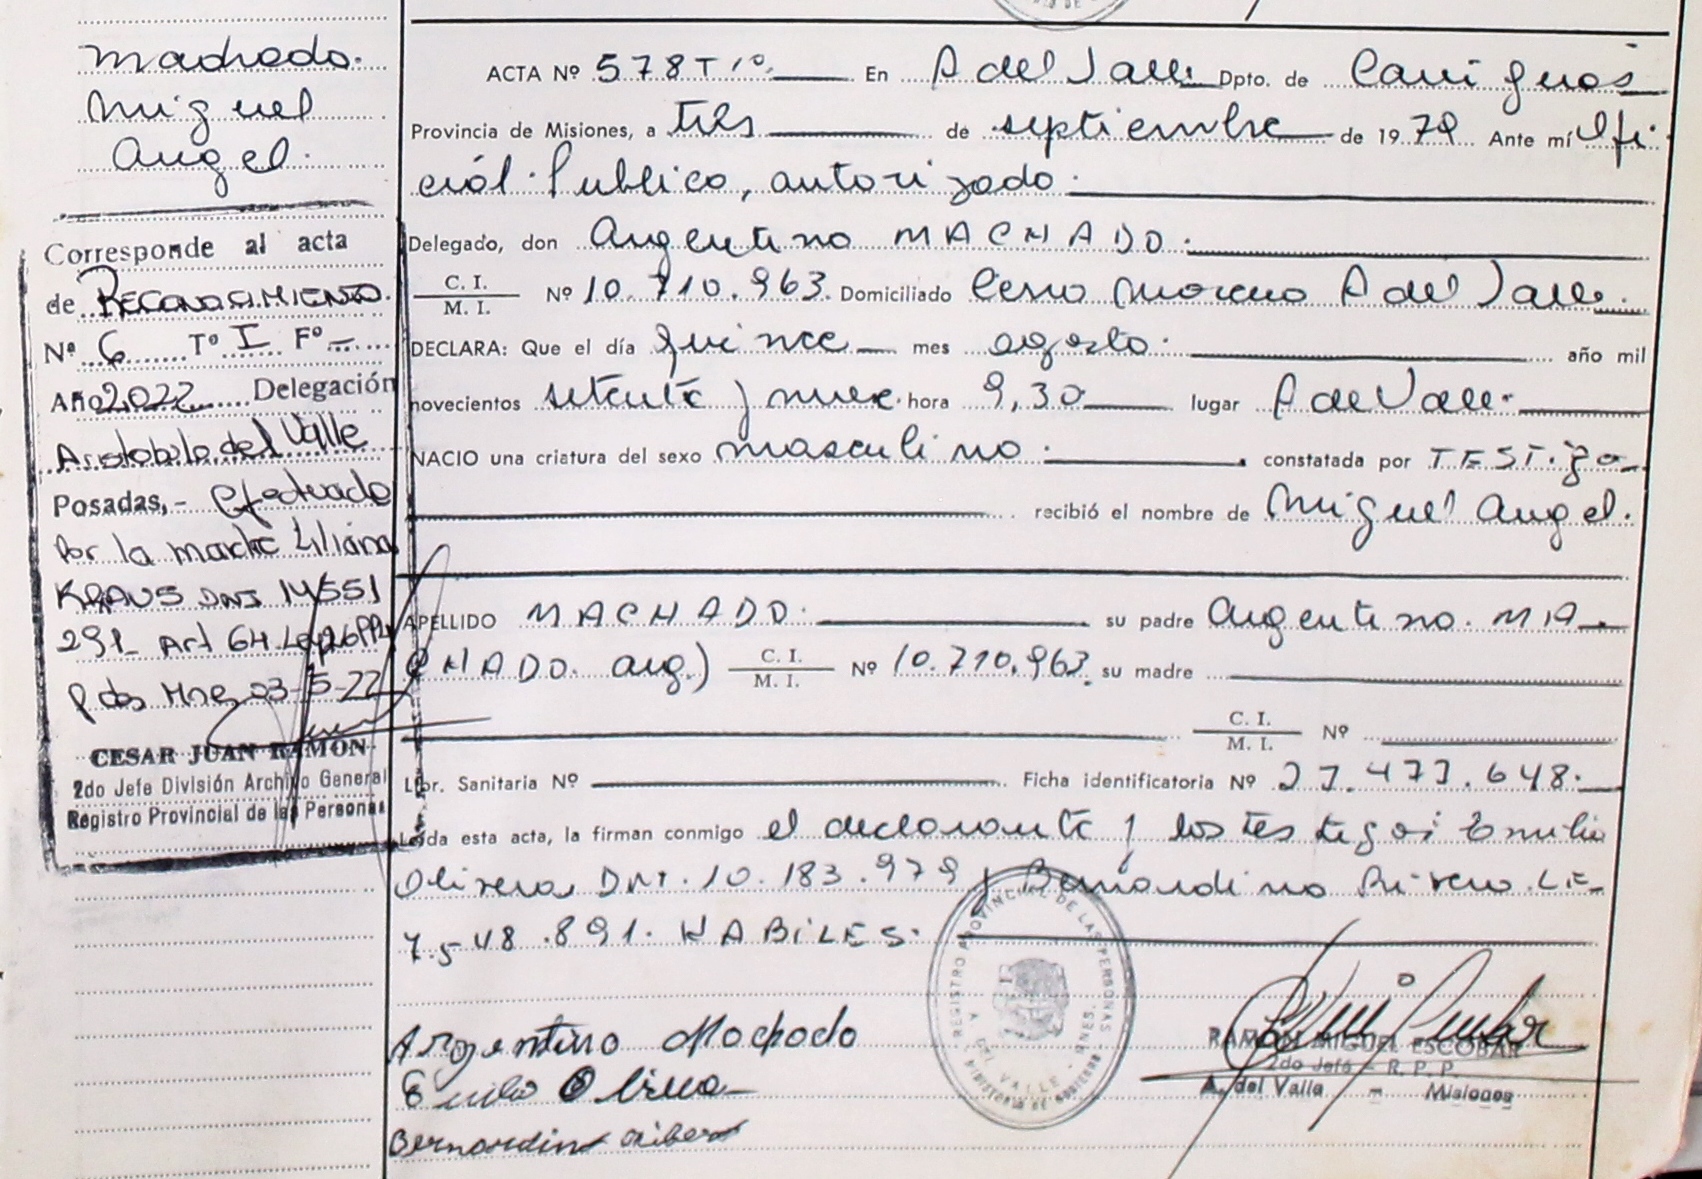 Machado.
Miguel
Angel.
Corresponde al acta
de RECONOSIMIENTO.
Nº 6 Tº I Fº —
Año 2022 Delegación
Aristobulo del Valle
Posadas,- efectuado
Por la madre Liliana
KRAUS DNI 14551
291- Art 64 Ley
Pdas Mnes 03-5-22
CESAR JUAN RAMON
2do Jefe División Archivo General
Registro Provincial de las Personas
ACTA Nº 578 Tº 1º. En A del Valle Dpto. de Cainguas
Provincia de Misiones, a tres de septiembre de 1979 Ante mí Ofi-
cial Publico, autorizado.
Delegado, don Argentino MACHADO.
C. I.
M. I. Nº 10.710.963. Domiciliado Cerro Moreno A del Valle.
DECLARA: Que el día quince mes agosto. año mil
novecientos setenta y nueve hora 9,30 lugar A del Valle.
NACIO una criatura del sexo masculino. constatada por TESTigo
recibió el nombre de Miguel Angel.
APELLIDO MACHADO. su padre Argentino. MA-
CHADO. arg.) C. I.
M. I. Nº 10.710.963. su madre
C. I.
M. I. Nº
Libr. Sanitaria Nº Ficha identificatoria Nº 27.477.648.
Leida esta acta, la firman conmigo el declarante y los testigos: Emilio
Olivera, DNI. 10.183.979 y Bernardino Rivero. LE-
7.548.891. HABILES.
REGISTRO PROVINCIAL DE LAS PERSONAS
A. DEL VALLE - MNES.
MINISTERIO DE GOBIERNO
Argentino Machado
Emilio Olivera
Bernardino Ribero
RAMON MIGUEL ESCOBAR
2do Jefe - R. P. P.
A. del Valle - Misiones